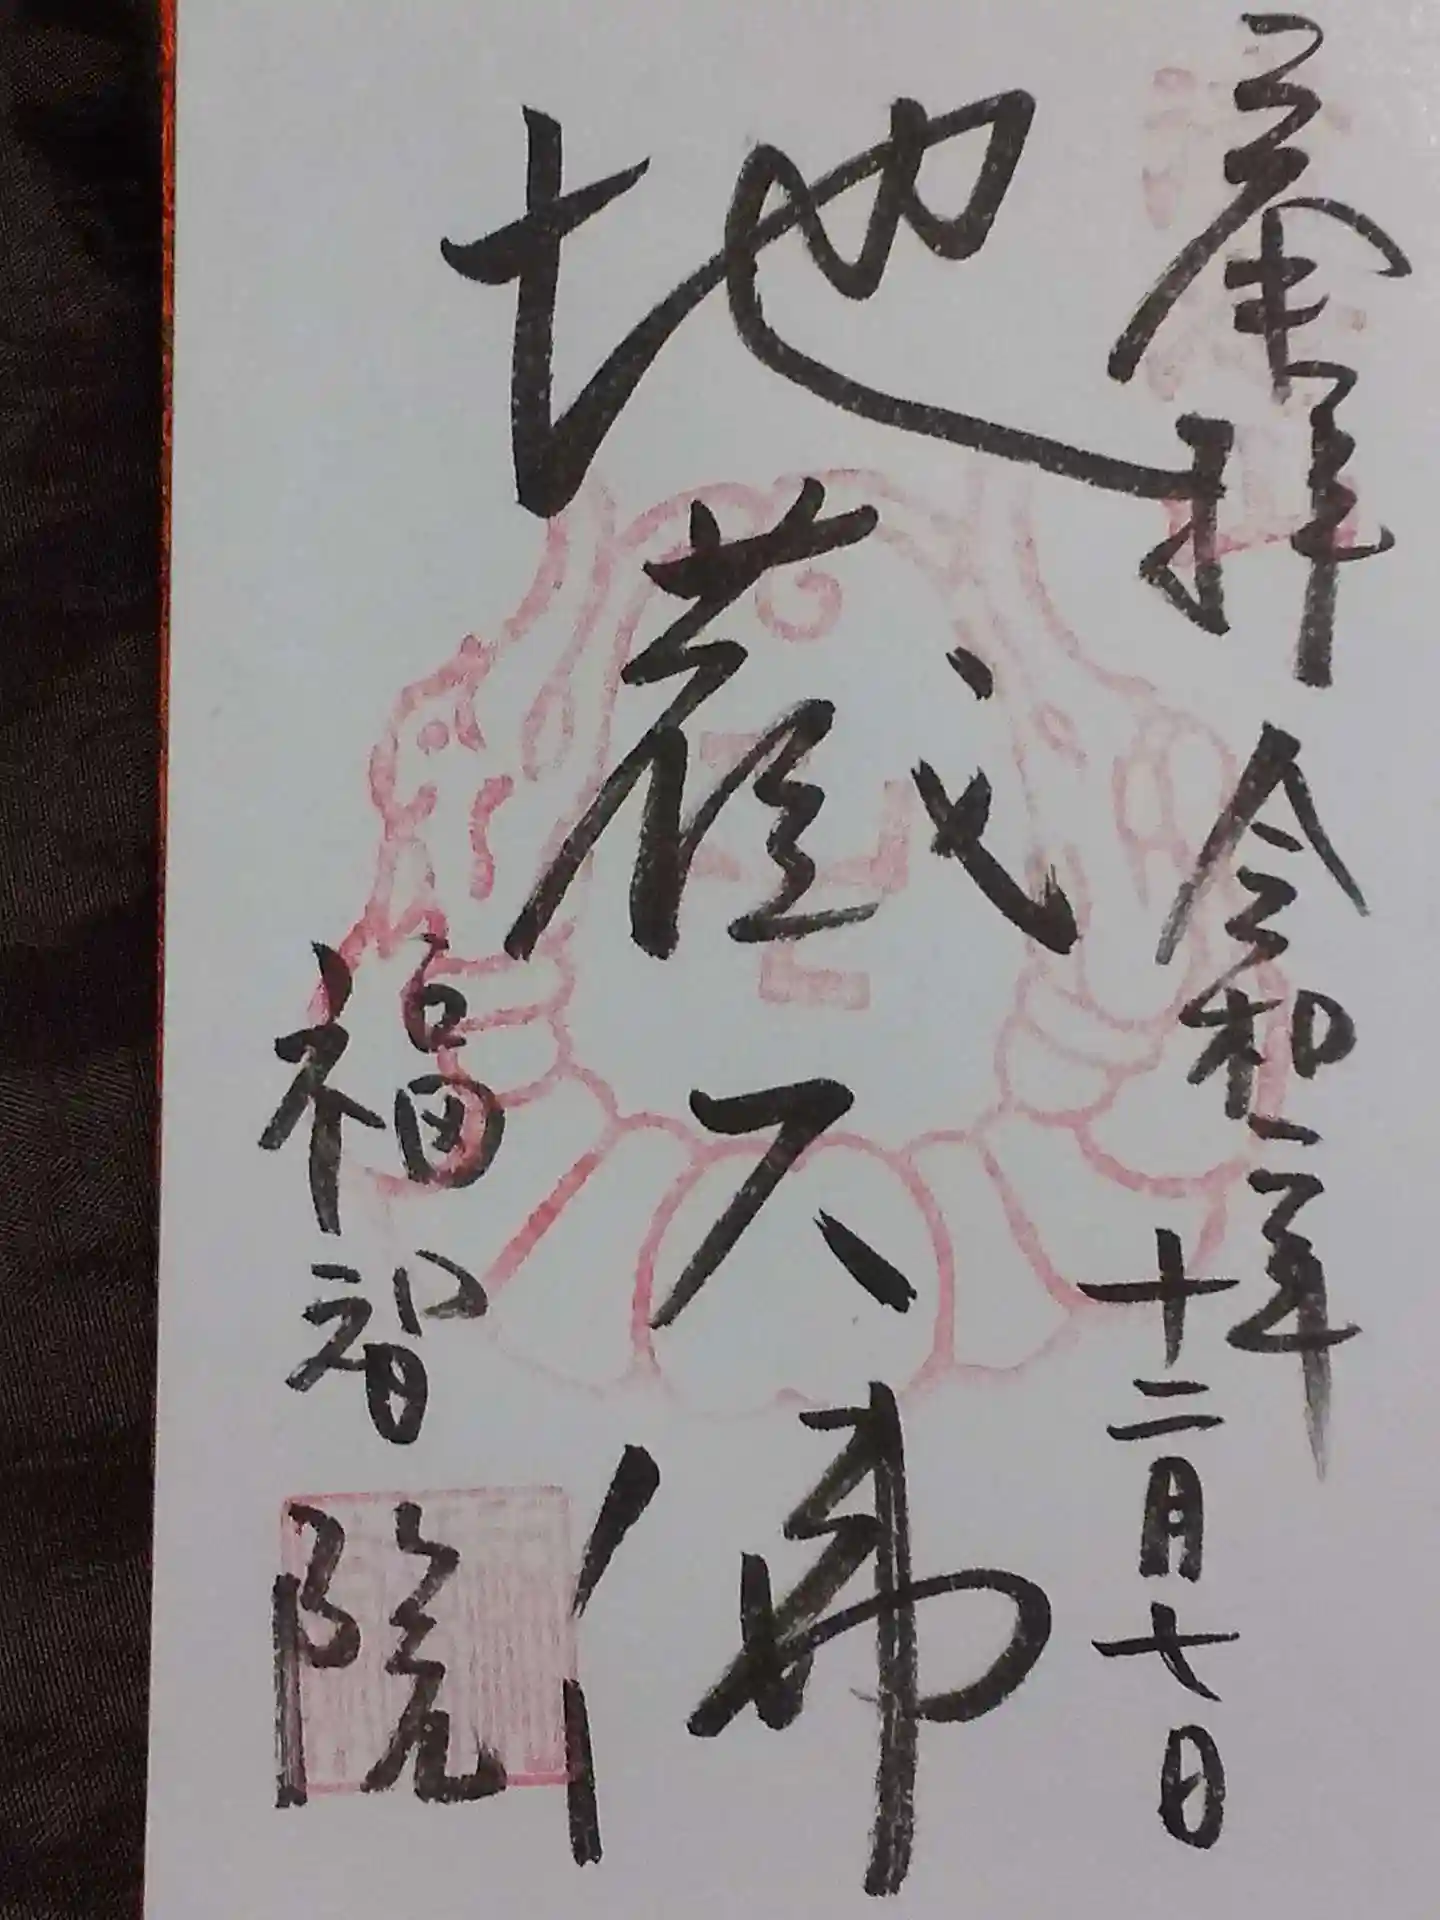 奉拝 令和二年
十二月七日
地蔵大佛
福智院